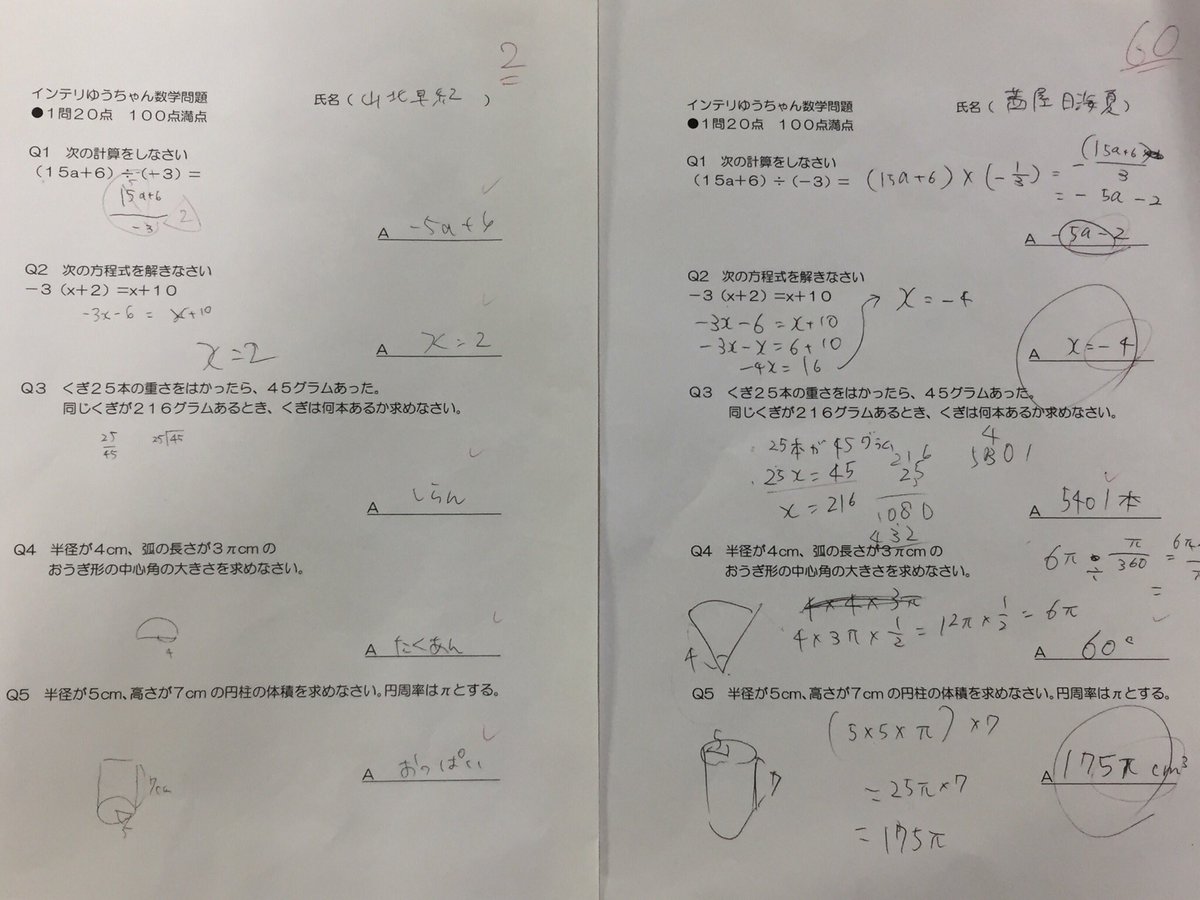 2
インテリゆうちゃん数学問題
氏名（山北早紀）
●1問20点　100点満点
Q1　次の計算をしなさい
（15a+6）÷（+3）＝
15a+6
-3
2
A -5a+6
Q2　次の方程式を解きなさい
－3（x+2）＝x+10
-3x-6 = x+10
x=2
A x=2
Q3　くぎ25本の重さをはかったら、45グラムあった。
同じくぎが216グラムあるとき、くぎは何本あるか求めなさい。
25
45
25 45
A しらん
Q4　半径が4cm、弧の長さが3πcmの
おうぎ形の中心角の大きさを求めなさい。
4
A たくあん
Q5　半径が5cm、高さが7cmの円柱の体積を求めなさい。円周率はπとする。
7cm
5
A おっぱい
60
インテリゆうちゃん数学問題
氏名（茜屋日海夏）
●1問20点　100点満点
Q1　次の計算をしなさい
（15a+6）÷（－3）＝ (15a+6)×(-1/3) = -(15a+6)/3
= -5a-2
A -5a-2
Q2　次の方程式を解きなさい
－3（x+2）＝x+10
x=-4
-3x-6=x+10
-3x-x=6+10
-4x=16
A x=-4
Q3　くぎ25本の重さをはかったら、45グラムあった。
同じくぎが216グラムあるとき、くぎは何本あるか求めなさい。
25本が45グラム
25x=45
x=216
216
25
1080
432
A 5401本
Q4　半径が4cm、弧の長さが3πcmの
おうぎ形の中心角の大きさを求めなさい。
6π÷π/360=
4×4×3π
4×3π×1/2=12π×1/2=6π
4
A 60°
Q5　半径が5cm、高さが7cmの円柱の体積を求めなさい。円周率はπとする。
(5×5×π)×7
5
7
=25π×7
=175π
A 175π cm³